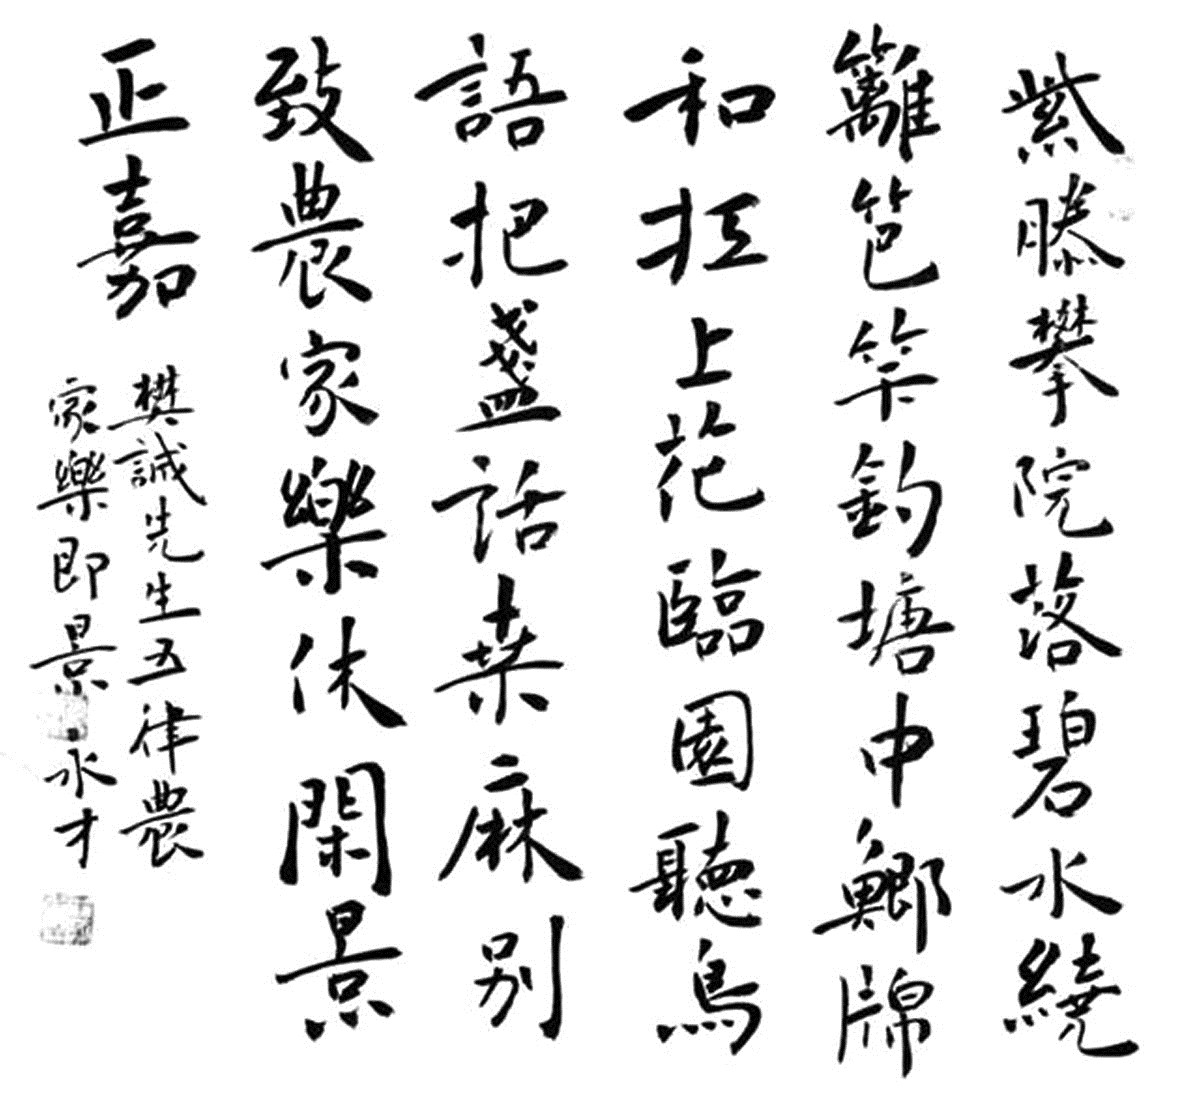 紫藤攀院落碧水繞
籬笆竿釣塘中鯽牌
和扛上花臨園聽鳥
語把盞話桑麻别
致農家樂休閑景
正嘉
樊誠先生五律農
家樂即景永才